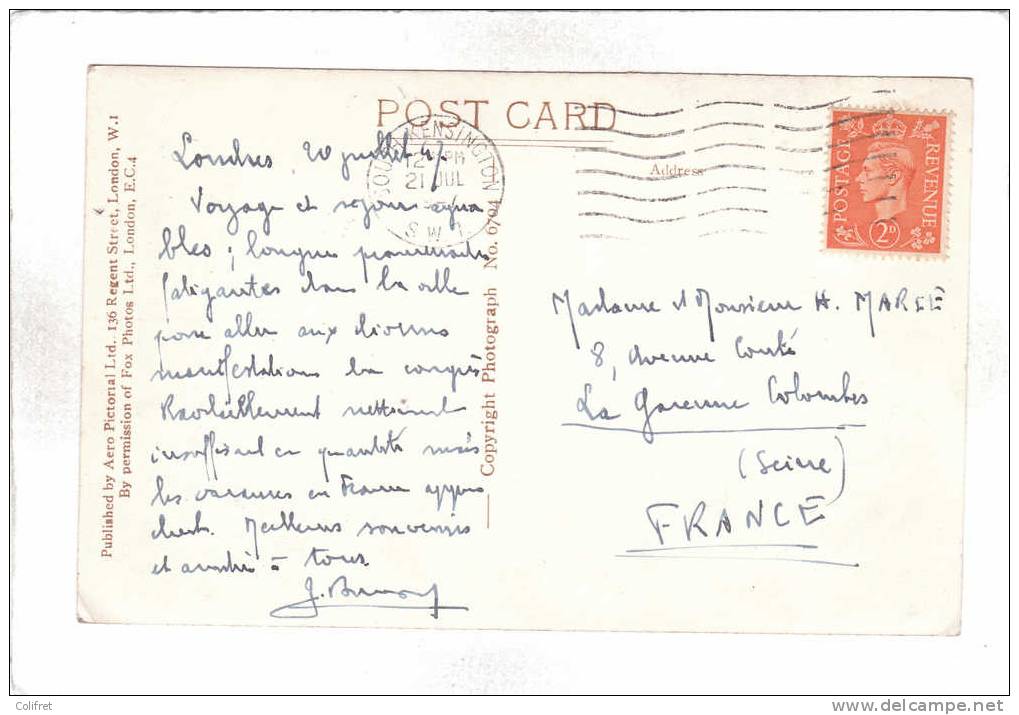 POST CARD
Published by Aero Pictorial Ltd. 136 Regent Street, London, W.1
By permission of Fox Photos Ltd., London, E.C.4
Londres 20 juillet 47
Voyage et séjour agréa
bles ; longues promenades
fatigantes dans la ville
pour aller aux diverses
manifestations du congrès
Ravitaillement nettement
insuffisant en quantité mais
les vacances en France appro
chent. Meilleurs souvenirs
et amitié à tous.
Copyright Photograph No. 6704
SOUTH KENSINGTON
12 PM
21 JUL
S.W.
Address
POSTAGE REVENUE
2D
Madame et Monsieur H. MAREE
8, Avenue Conté
La Garenne Colombes
(Seine)
FRANCE
Colifret
www.delcampe.net